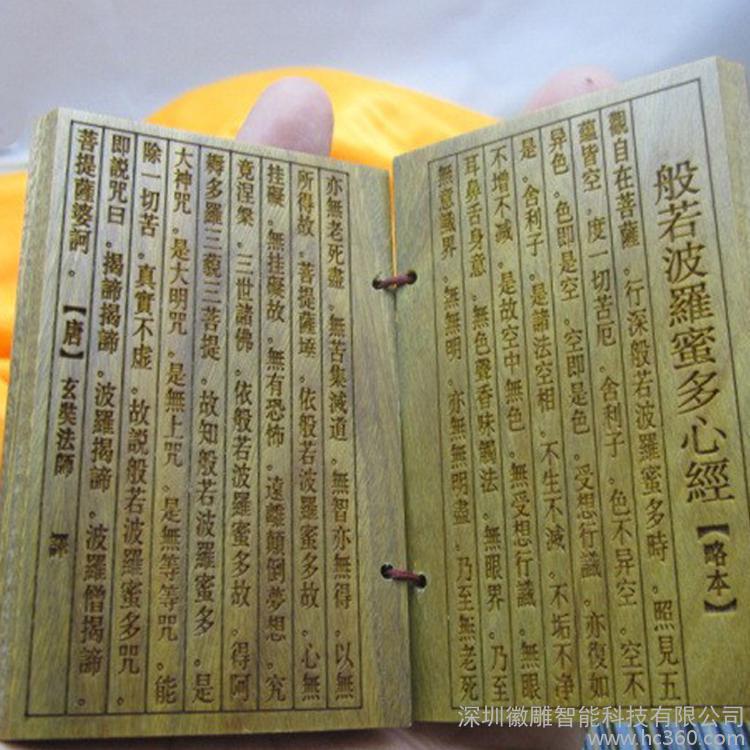 般若波羅蜜多心經【略本】
觀自在菩薩。行深般若波羅蜜多時。照見五
蘊皆空。度一切苦厄。舍利子。色不异空。空不
异色。色即是空。空即是色。受想行識。亦復如
是。舍利子。是諸法空相。不生不滅。不垢不净
不增不减。是故空中無色。無受想行識。無眼
耳鼻舌身意。無色聲香味觸法。無眼界。乃至
無意識界。無無明。亦無無明盡。乃至無老死
亦無老死盡。無苦集滅道。無智亦無得。以無
所得故。菩提薩埵。依般若波羅蜜多故。心無
挂礙。無挂礙故。無有恐怖。遠離顛倒夢想。究
竟涅槃。三世諸佛。依般若波羅蜜多故。得阿
耨多羅三藐三菩提。故知般若波羅蜜多。是
大神咒。是大明咒。是無上咒。是無等等咒。能
除一切苦。真實不虛。故説般若波羅蜜多咒。
即説咒曰。揭諦揭諦。波羅揭諦。波羅僧揭諦。
菩提薩婆訶。【唐】玄奘法師 譯
深圳徽雕智能科技有限公司
www.hc360.com